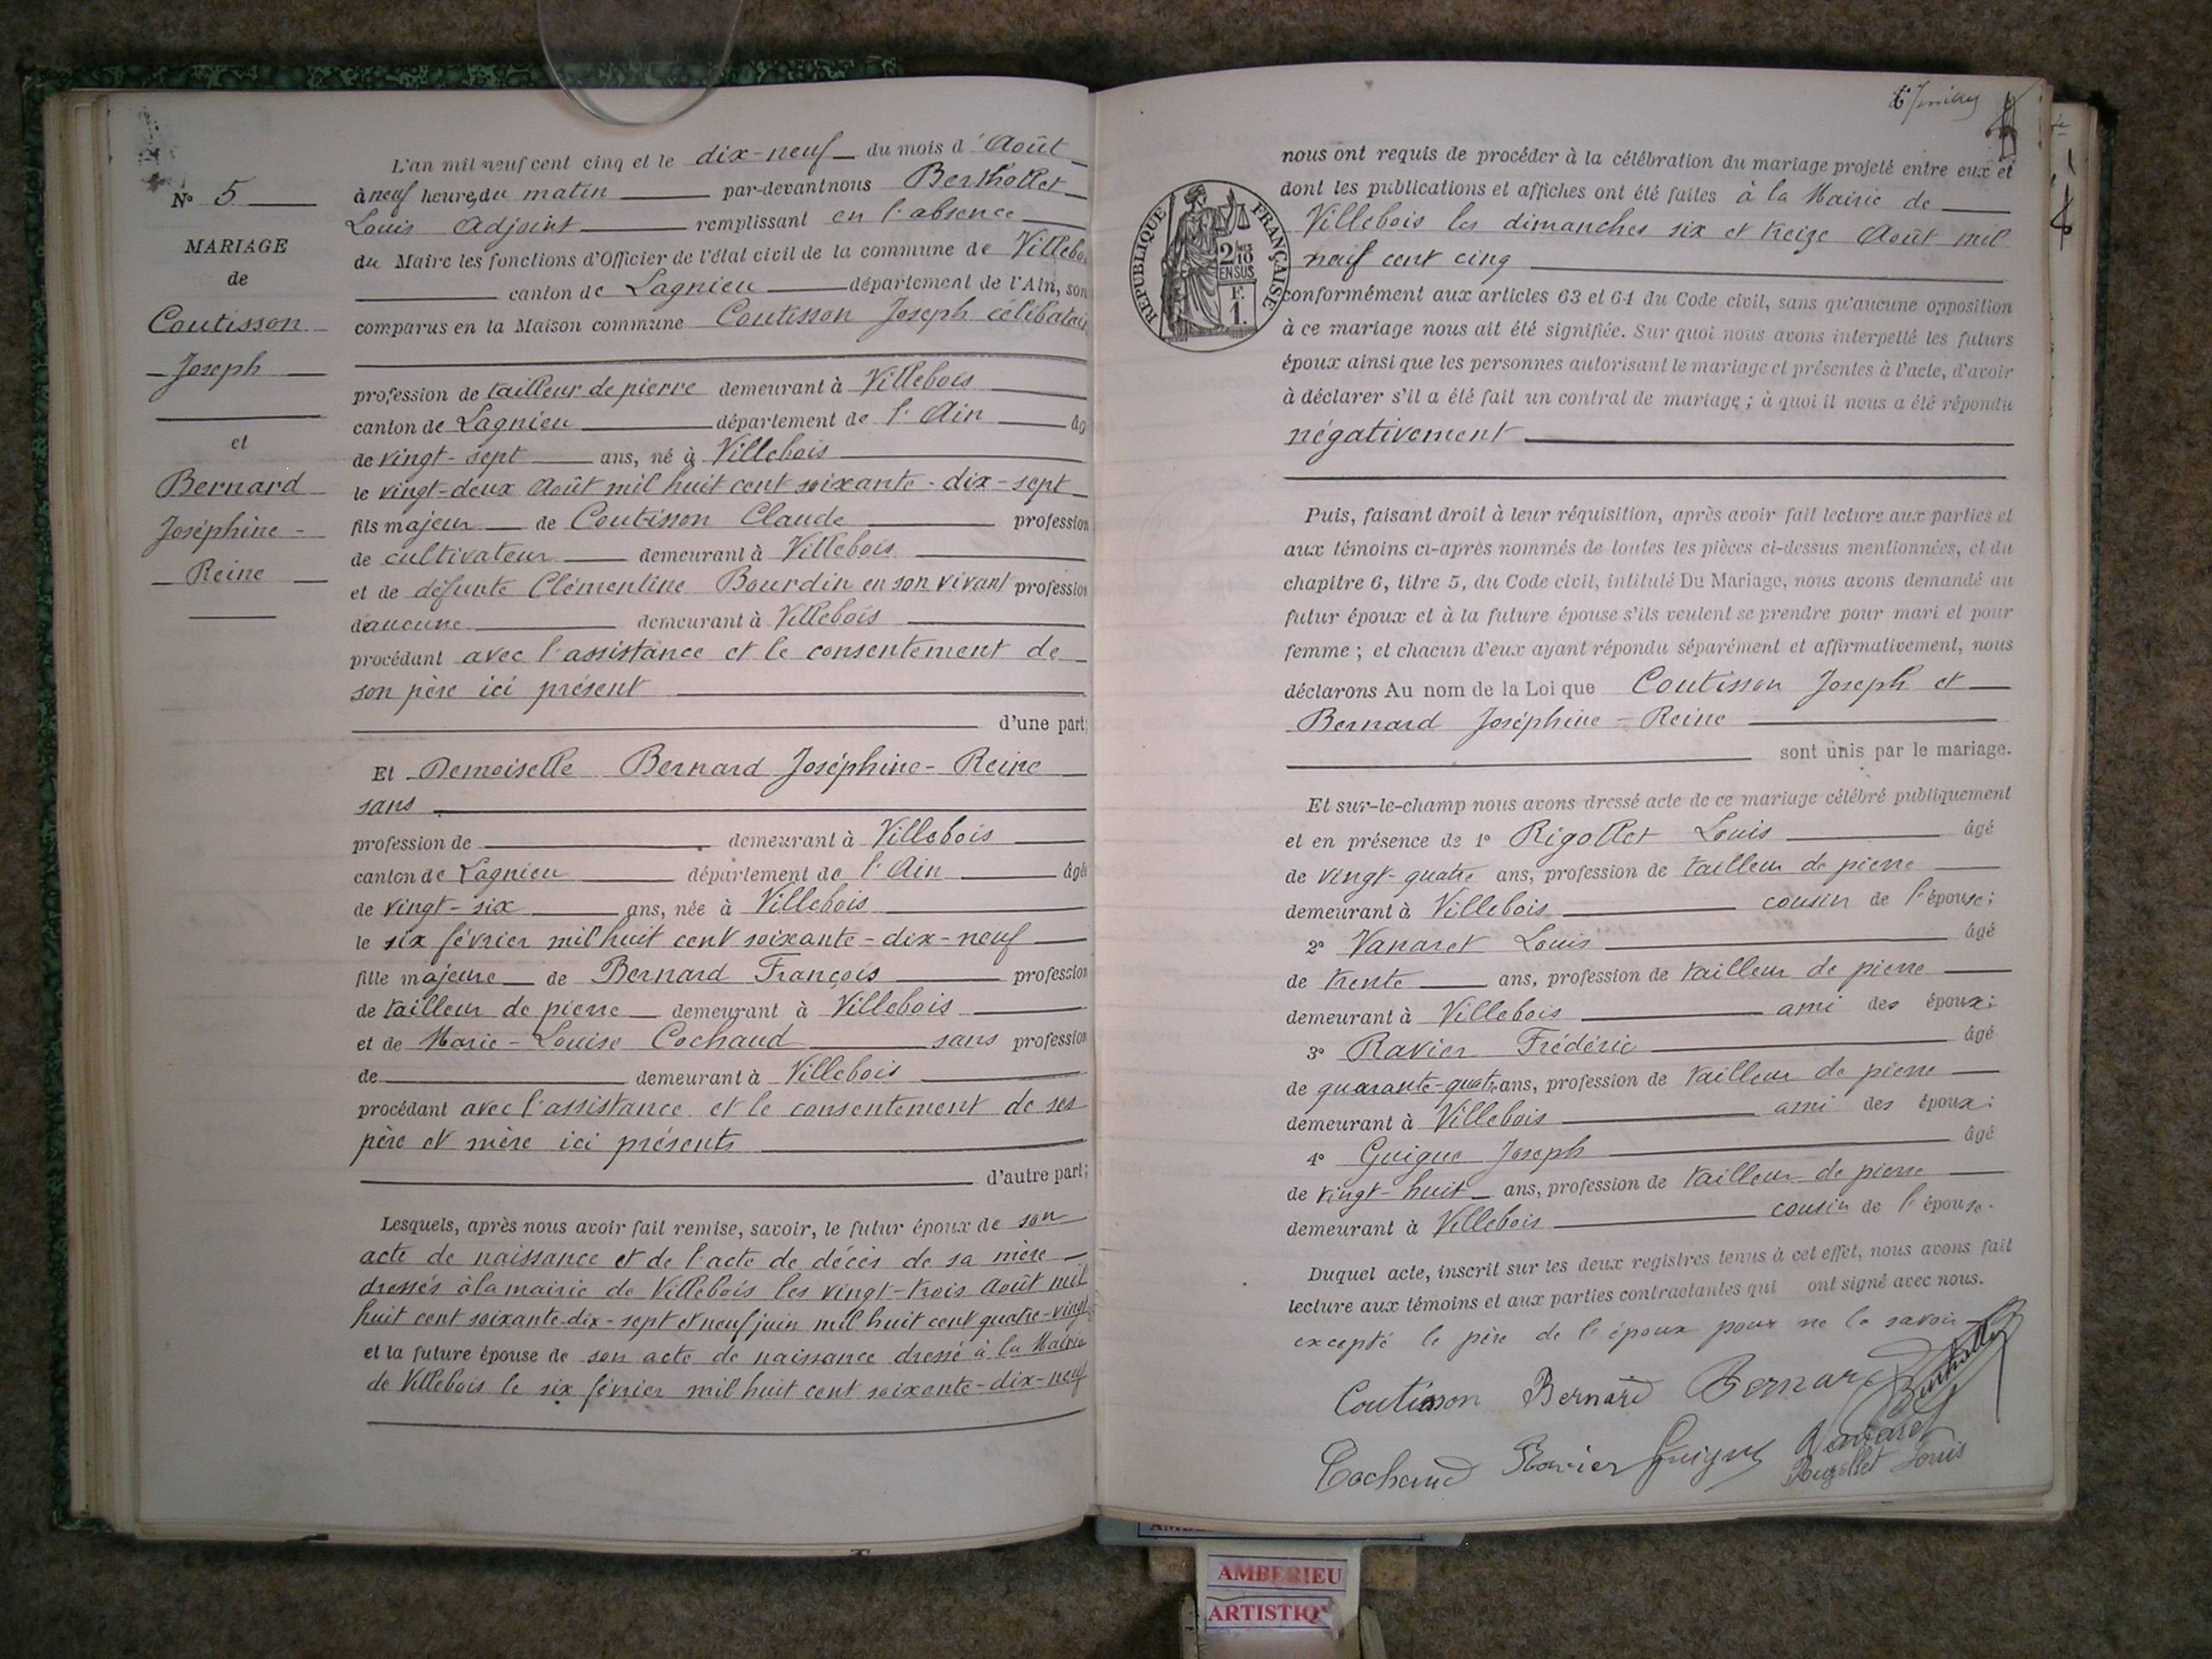 N° 5
MARIAGE
de
Coutisson
Joseph
et
Bernard
Joséphine-
Reine
L'an mil neuf cent cinq et le dix-neuf du mois d'Août
à neuf heures du matin par-devant nous Berthollet
Louis Adjoint remplissant en l'absence
du Maire les fonctions d'Officier de l'état civil de la commune de Villebo
canton de Lagnieu département de l'Ain, son
comparus en la Maison commune Coutisson Joseph célibatair
profession de tailleur de pierre demeurant à Villebois
canton de Lagnieu département de l'Ain âg
de vingt-sept ans, né à Villebois
le vingt-deux Août mil huit cent soixante-dix-sept
fils majeur de Coutisson Claude profession
de cultivateur demeurant à Villebois
et de défunte Clémentine Bourdin en son vivant profession
d'aucune demeurant à Villebois
procédant avec l'assistance et le consentement de
son père ici présent
d'une part;
Et Demoiselle Bernard Joséphine-Reine
sans
profession de demeurant à Villebois
canton de Lagnieu département de l'Ain âgé
de vingt-six ans, née à Villebois
le six février mil huit cent soixante-dix-neuf
fille majeure de Bernard François profession
de tailleur de pierre demeurant à Villebois
et de Marie-Louise Cochaud sans profession
de demeurant à Villebois
procédant avec l'assistance et le consentement de ses
père et mère ici présents
d'autre part;
Lesquels, après nous avoir fait remise, savoir, le futur époux de son
acte de naissance et de l'acte de décès de sa mère
dressés à la mairie de Villebois les vingt-trois Août mil
huit cent soixante-dix-sept et neuf juin mil huit cent quatre-vingt
et la future épouse de son acte de naissance dressé à la Mairie
de Villebois le six février mil huit cent soixante-dix-neuf
nous ont requis de procéder à la célébration du mariage projeté entre eux et
dont les publications et affiches ont été faites à la Mairie de
Villebois les dimanches six et treize Août mil
neuf cent cinq
RÉPUBLIQUE FRANÇAISE
2/10
EN SUS
F.
1.
conformément aux articles 63 et 64 du Code civil, sans qu'aucune opposition
à ce mariage nous ait été signifiée. Sur quoi nous avons interpellé les futurs
époux ainsi que les personnes autorisant le mariage et présentes à l'acte, d'avoir
à déclarer s'il a été fait un contrat de mariage ; à quoi il nous a été répondu
négativement
Puis, faisant droit à leur réquisition, après avoir fait lecture aux parties et
aux témoins ci-après nommés de toutes les pièces ci-dessus mentionnées, et du
chapitre 6, titre 5, du Code civil, intitulé Du Mariage, nous avons demandé au
futur époux et à la future épouse s'ils veulent se prendre pour mari et pour
femme ; et chacun d'eux ayant répondu séparément et affirmativement, nous
déclarons Au nom de la Loi que Coutisson Joseph et
Bernard Joséphine-Reine
sont unis par le mariage.
Et sur-le-champ nous avons dressé acte de ce mariage célébré publiquement
et en présence de 1° Rigollet Louis âgé
de vingt-quatre ans, profession de tailleur de pierre
demeurant à Villebois cousin de l'épouse;
2° Vanaret Louis âgé
de trente ans, profession de tailleur de pierre
demeurant à Villebois ami des époux;
3° Ravier Frédéric âgé
de quarante-quatre ans, profession de tailleur de pierre
demeurant à Villebois ami des époux;
4° Guigue Joseph âgé
de vingt-huit ans, profession de tailleur de pierre
demeurant à Villebois cousin de l'épouse.
Duquel acte, inscrit sur les deux registres tenus à cet effet, nous avons fait
lecture aux témoins et aux parties contractantes qui ont signé avec nous.
excepté le père de l'époux pour ne le savoir
Coutisson Bernard Bernard Berthollet
Cochaud Ravier Guigue Vanaret
Rigollet Louis
AMBERIEU
ARTISTIQ